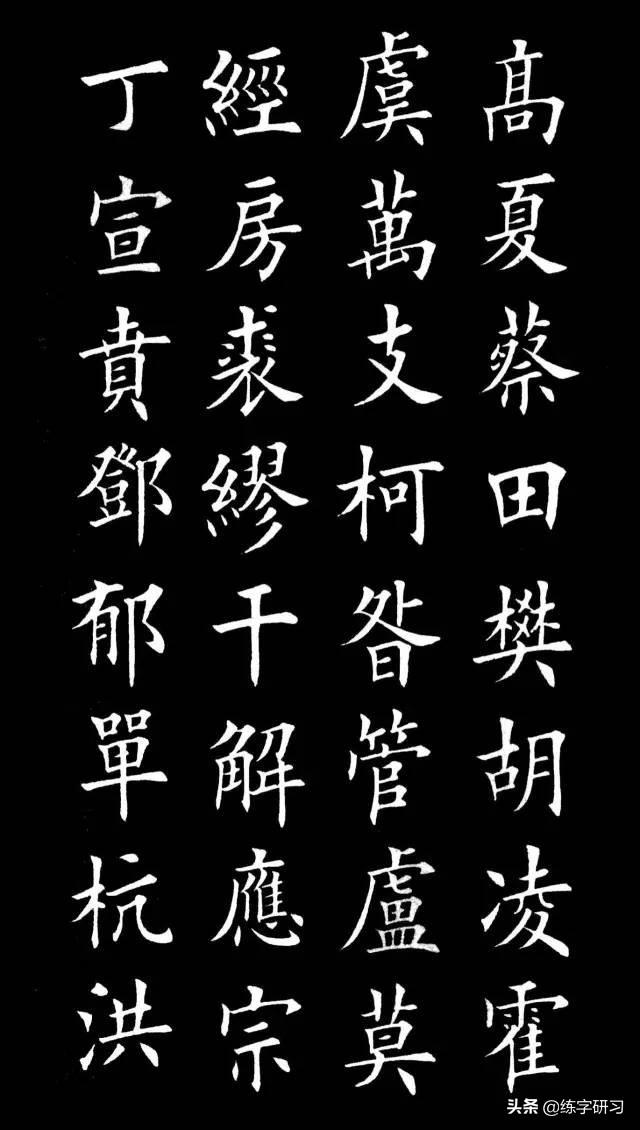 髙夏蔡田樊胡凌霍
虞萬支柯昝管盧莫
經房裘繆干解應宗
丁宣賁鄧郁單杭洪
头条 @练字研习